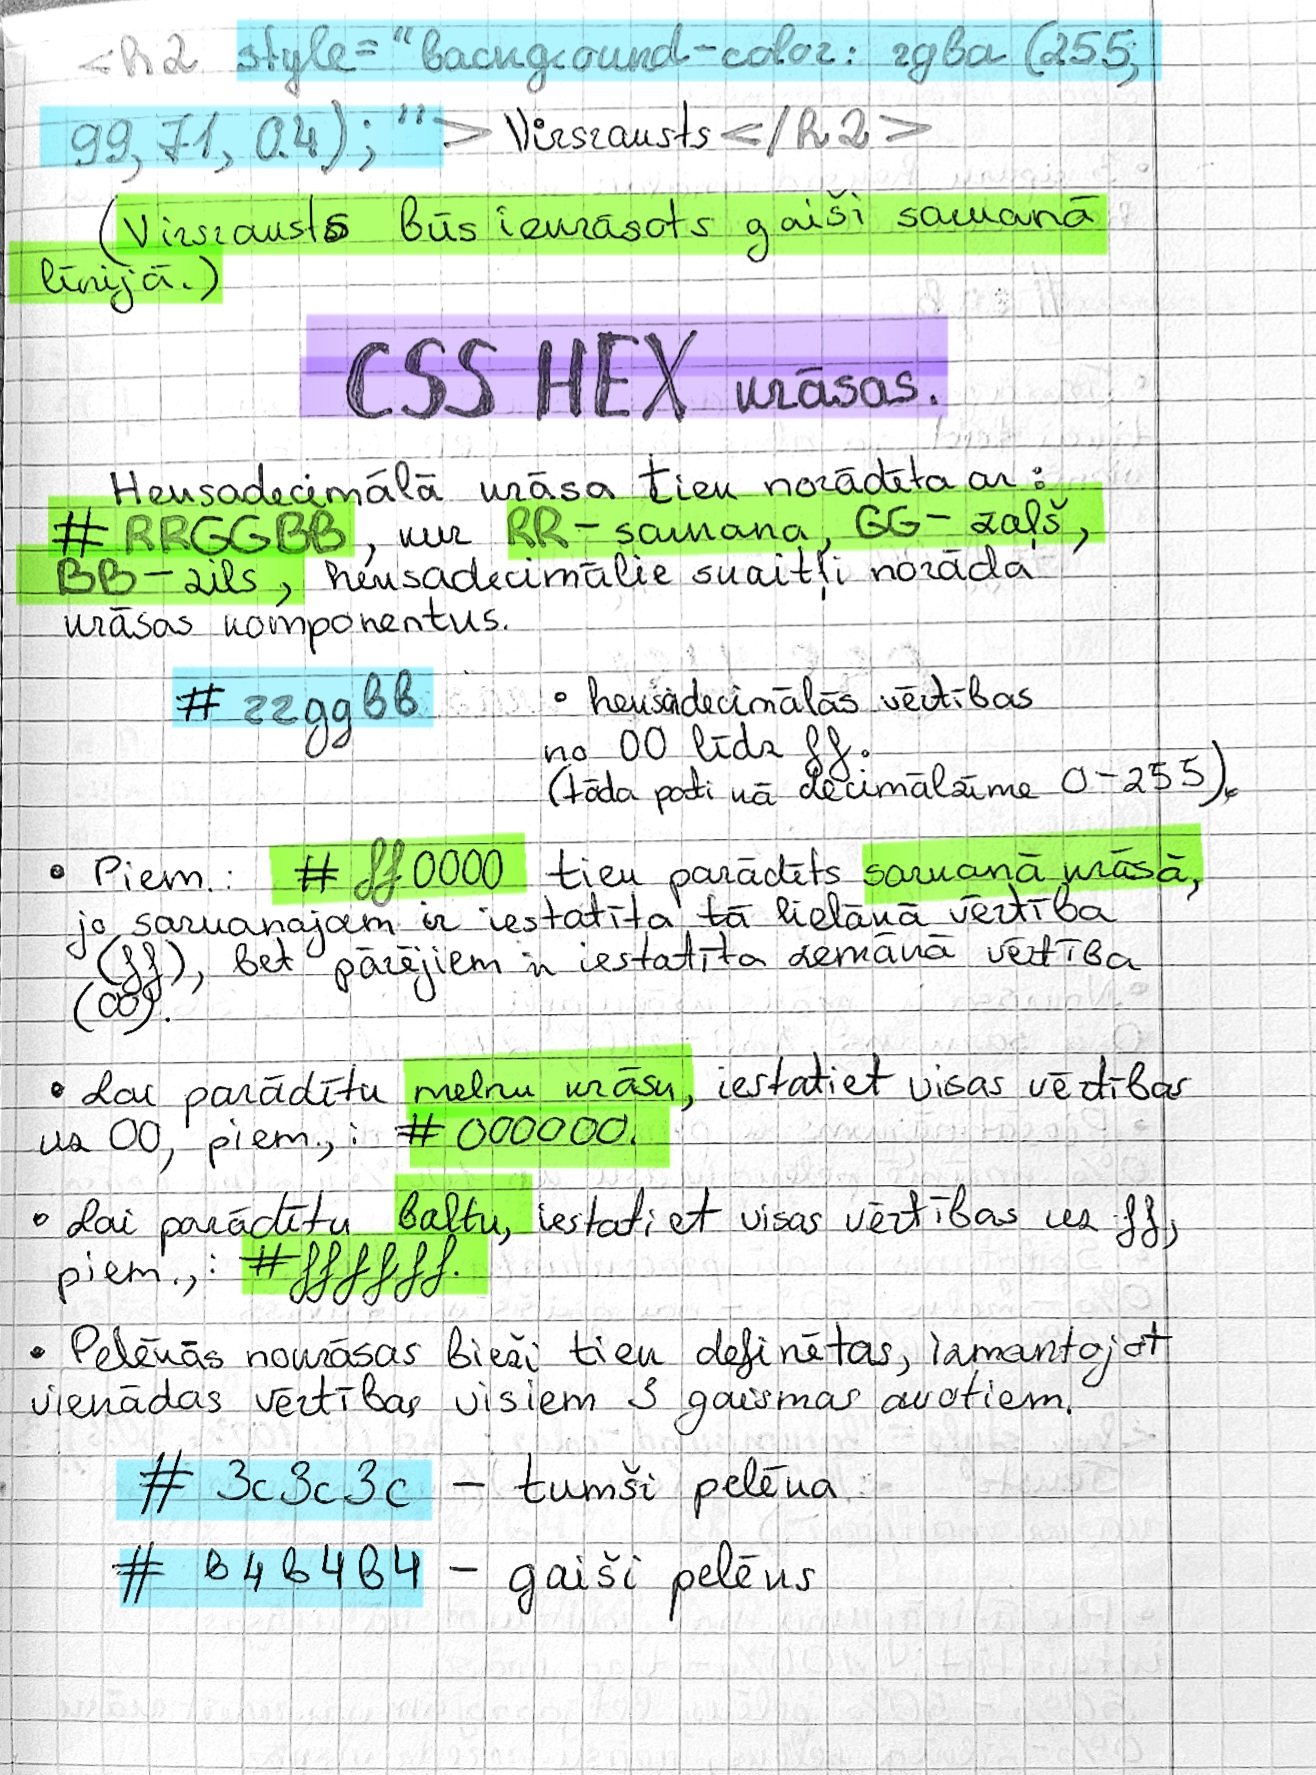 <h2 style="background-color: rgba (255,
99, 71, 0.4); "> Virsraksts </h2>
(Virsraksts būs iekrāsots gaiši sarkanā
līnijā.)
CSS HEX krāsas.
Heksadecimālā krāsa tiek norādīta ar :
# RRGGBB, kur RR – sarkana, GG – zaļš,
BB – zils, heksadecimālie skaitļi norāda
krāsas komponentus.
# rrggbb
• heksadecimālās vērtības
no 00 līdz ff.
(tāda pati kā decimālzīme 0 – 255).
• Piem.: # ff0000 tiek parādīts sarkanā krāsā,
jo sarkanajam ir iestatīta tā lielākā vērtība
(ff), bet pārējiem ir iestatīta zemākā vērtība
(00).
• Lai parādītu melnu krāsu, iestatiet visas vērtības
uz 00, piem., : # 000000.
• Lai parādītu baltu, iestatiet visas vērtības uz ff,
piem., : # ffffff.
• Pelēkās nokrāsas bieži tiek definētas, izmantojot
vienādas vērtības visiem 3 gaismas avotiem.
# 3c3c3c – tumši pelēka
# b4b4b4 – gaiši pelēks